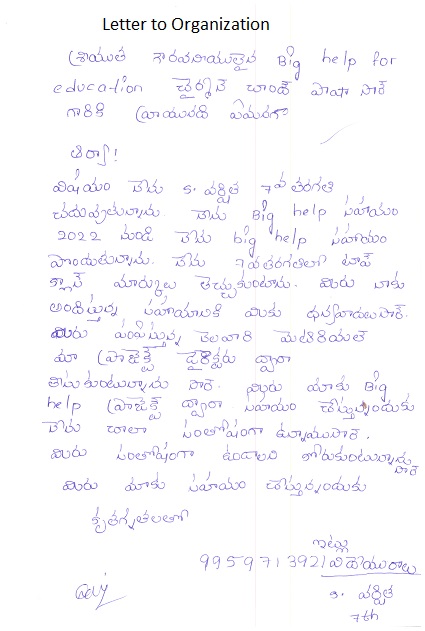 Letter to Organization
శ్రీయుత గౌరవనీయులైన Big help for
education చైర్మన్ చాంద్ పాషా సార్
గారికి వ్రాయునది ఏమనగా
ఆర్యా!
విషయం నేను S. వర్షిత 7వ తరగతి
చదువుతున్నాను. నేను Big help సహాయం
2022 నుండి నేను big help సహాయం
పొందుతున్నాను. నేను 7వ తరగతిలో టాప్
క్లాస్ మార్కులు తెచ్చుకుంటాను. మీరు నాకు
అందిస్తున్న సహాయానికి మీకు ధన్యవాదాలు సార్.
మీరు పంపిస్తున్న నెలవారి మెటీరియల్
మా ప్రాజెక్ట్ డైరెక్టరు ద్వారా
తీసుకుంటున్నాను సార్. మీరు మాకు Big
help ప్రాజెక్ట్ ద్వారా సహాయం చేస్తున్నందుకు
నేను చాలా సంతోషంగా ఉన్నాము సార్.
మీరు సంతోషంగా ఉండాలని కోరుకుంటున్నాను సార్
మీరు మాకు సహాయం చేస్తున్నందుకు
కృతజ్ఞతలతో
ఇట్లు
9959713921 విధేయురాలు
S. వర్షిత
7th